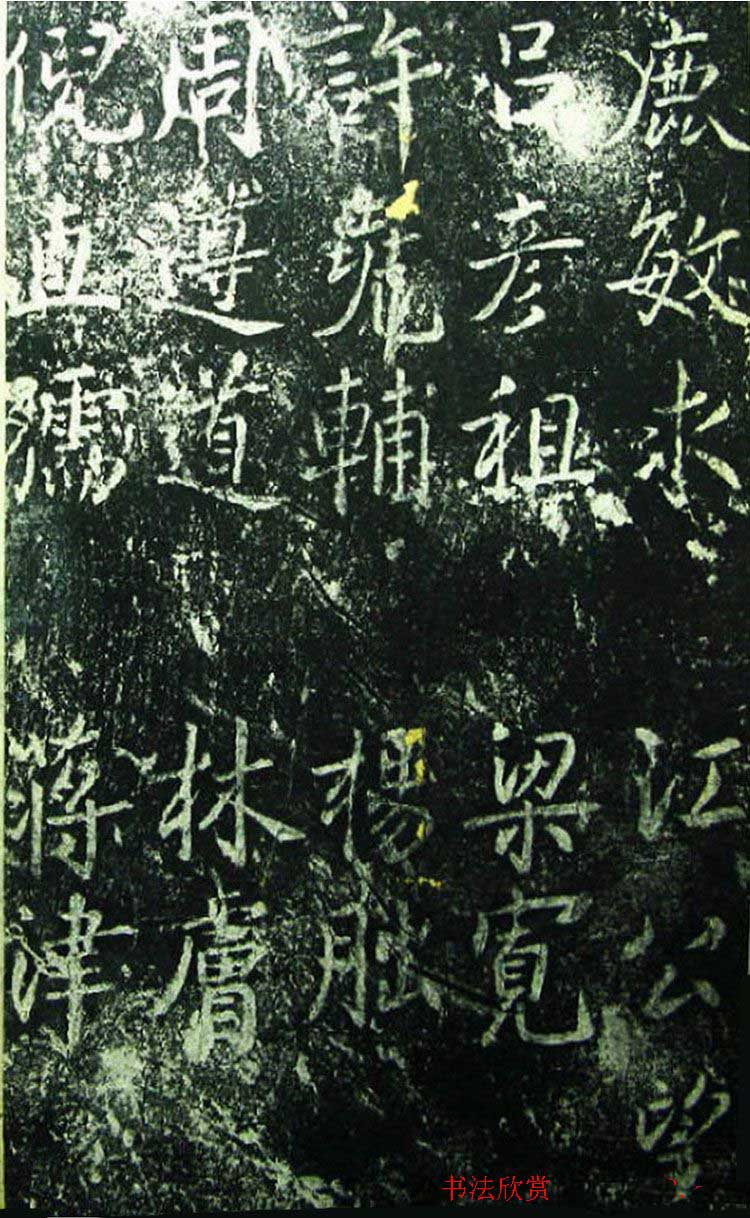 鹿敏求 江公望
呂彥祖 梁寬
許堯輔 楊朏
周遵道 林膚
倪直孺 蔣津
书法欣赏